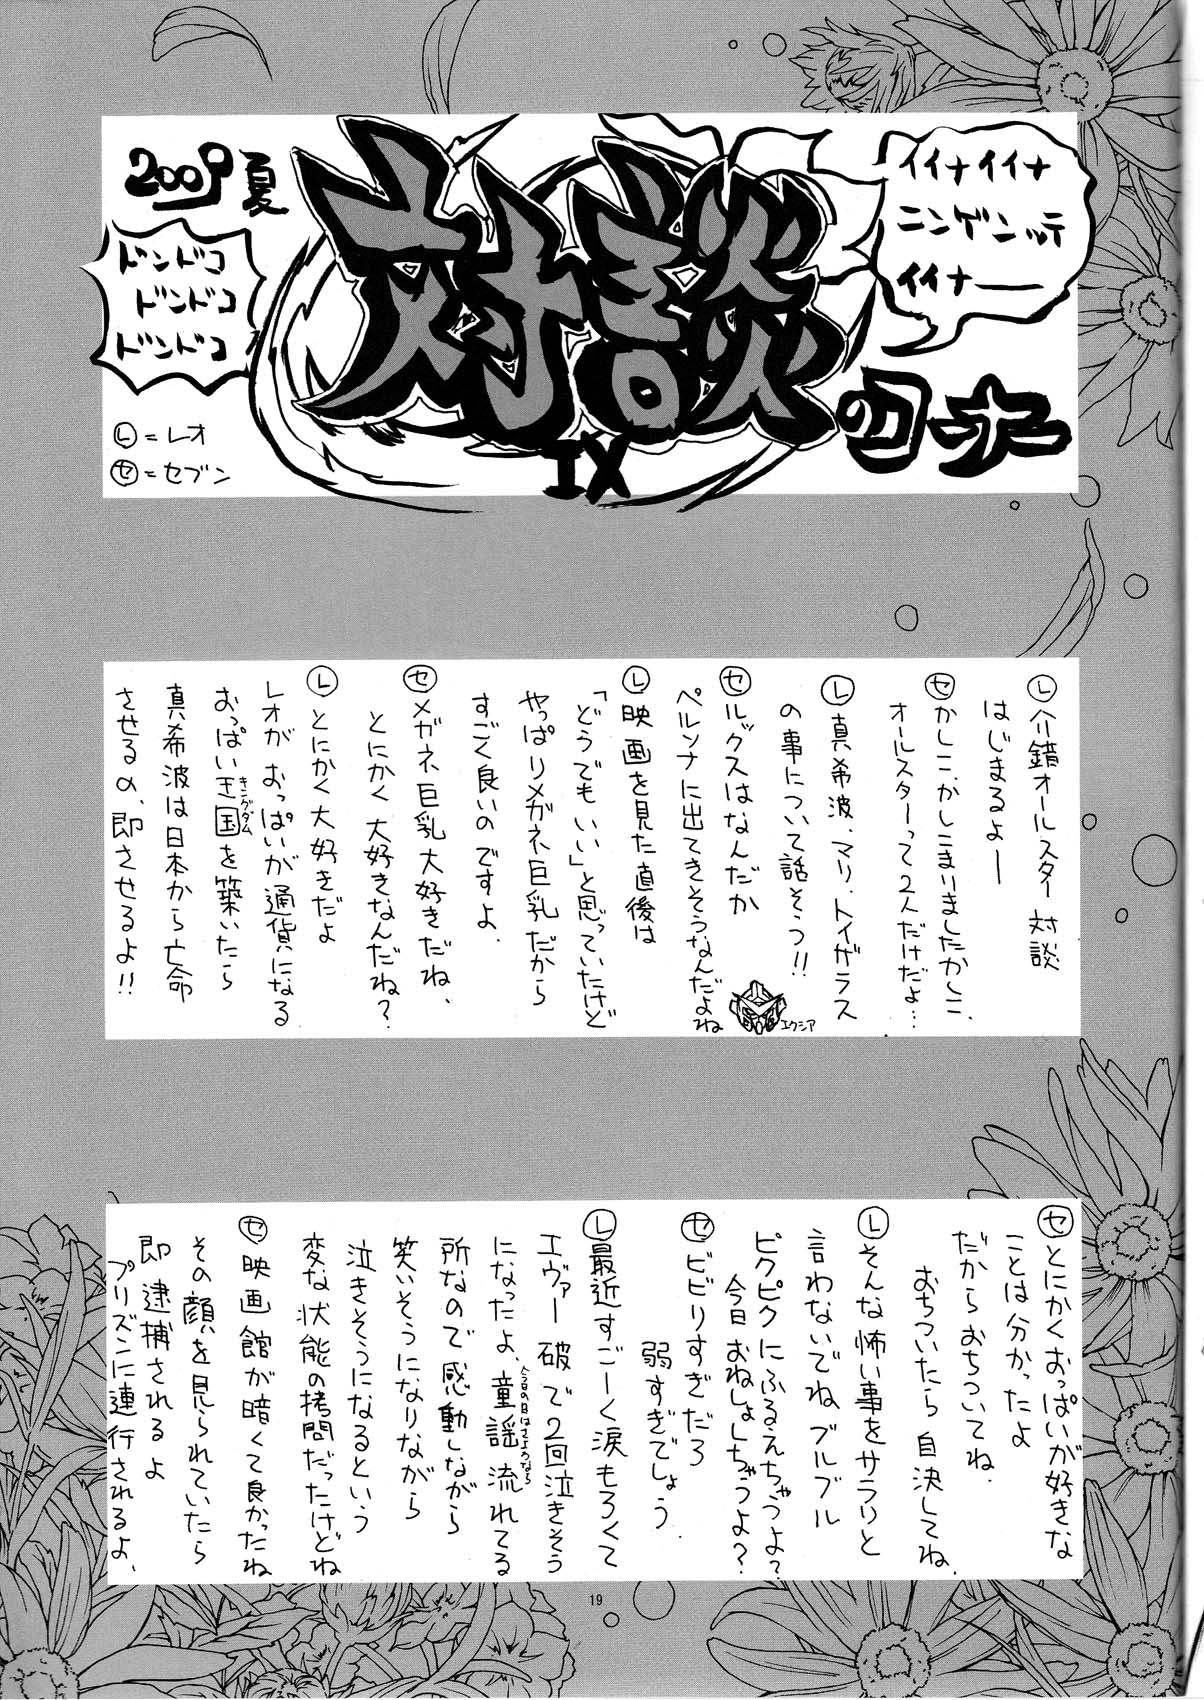 2009夏
対談
IX
のコーナー
イイナイイナ
ニンゲンッテ
イイナー
ドンドコ
ドンドコ
ドンドコ
Ⓛ=レオ
㋝=セブン
Ⓛ介錯オールスター対談
はじまるよー
㋝かしこ、かしこまりましたかしこ、
オールスターって2人だけだよ…
Ⓛ真希波、マリ、トイザラス
の事について話そう!!
㋝ルックスはなんだか
ペルソナに出てきそうなんだよね
エクシア
Ⓛ映画を見た直後は
「どうでもいい」と思っていたけど
やっぱりメガネ巨乳だから
すごく良いのですよ。
㋝メガネ巨乳大好きだね、
とにかく大好きなんだね?
Ⓛとにかく大好きだよ
レオがおっぱいが通貨になる
おっぱい王国を築いたら
キングダム
真希波は日本から亡命
させるの、即させるよ!!
㋝とにかくおっぱいが好きな
ことは分かったよ
だからおちついてね、
おちついたら自決してね。
Ⓛそんな怖い事をサラリと
言わないでねブルブル
ピクピクにふるえちゃうよ?
今日おねしょしちゃうよ?
㋝ビビりすぎだろ
弱すぎでしょう
Ⓛ最近すごーく涙もろくて
エヴァー破で2回泣きそう
になったよ、童謡流れてる
今日の日はさようなら
所なので感動しながら
笑いそうになりながら
泣きそうになるという
変な状態の拷問だったけどね
㋝映画館が暗くて良かったね
その顔を見られていたら
即逮捕されるよ
プリズンに連行されるよ、
19